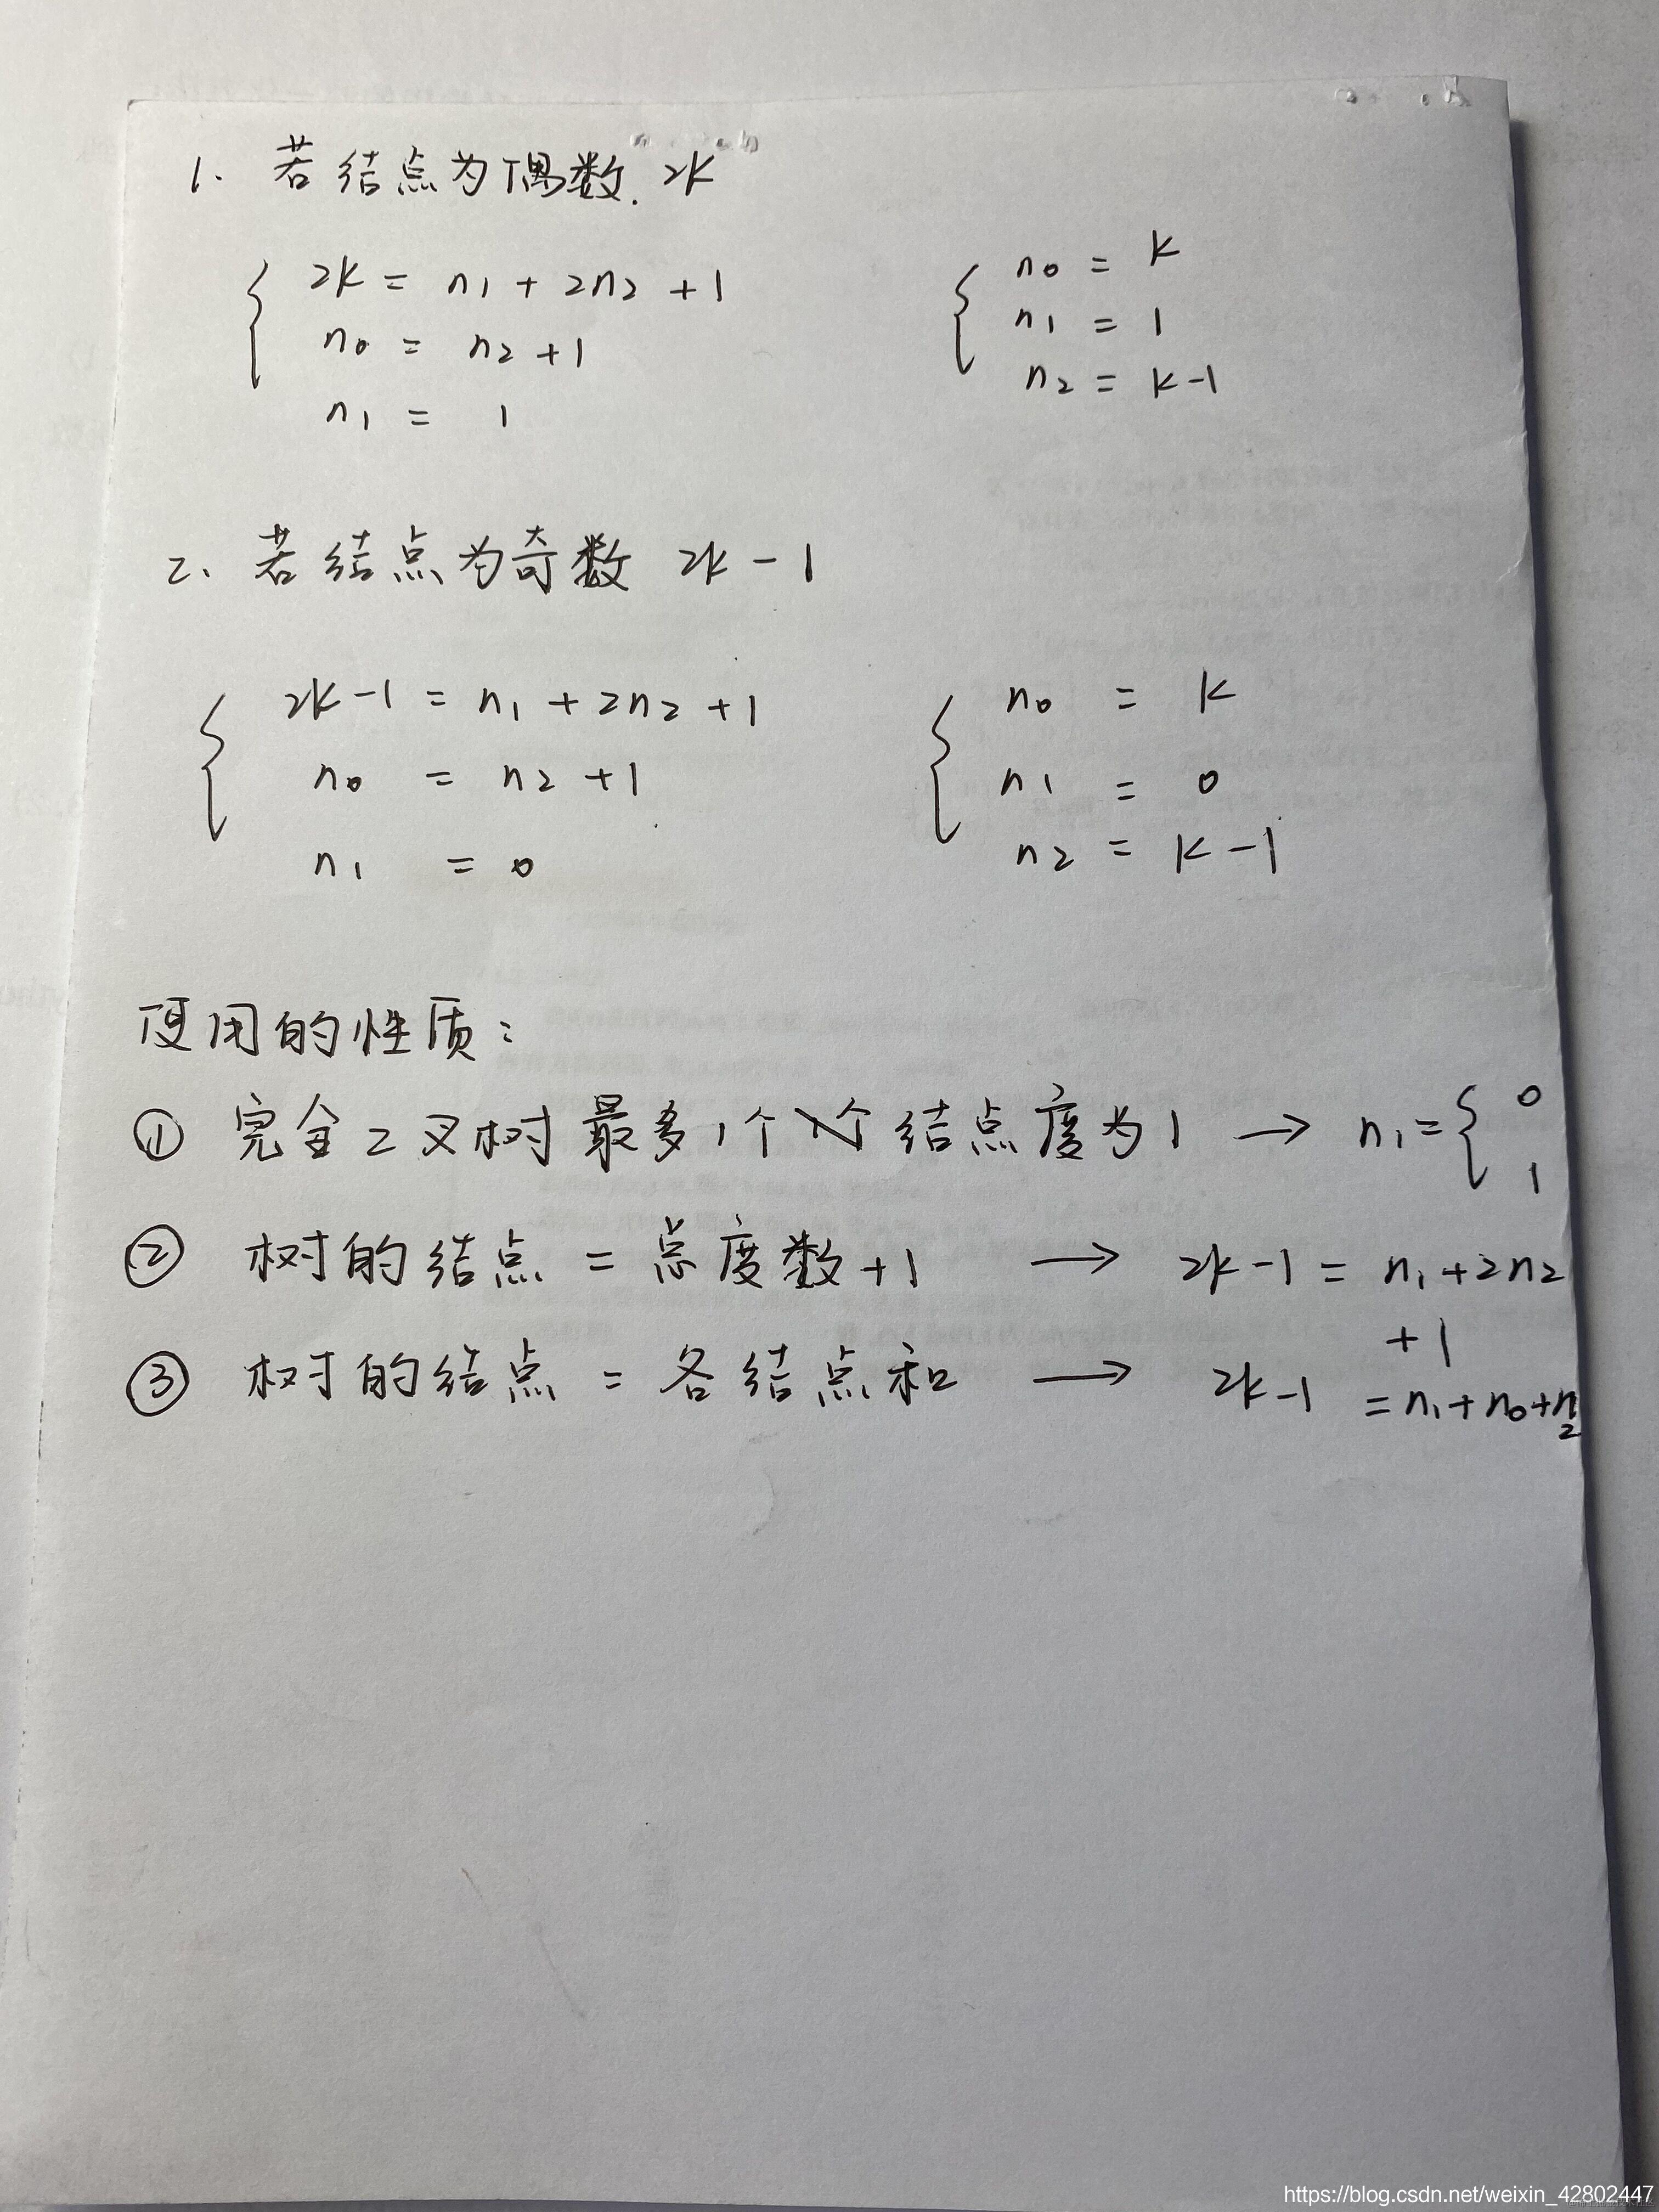 1. 若结点为偶数. 2k
2k = n1 + 2n2 + 1
n0 = n2 + 1
n1 = 1
n0 = k
n1 = 1
n2 = k-1
2. 若结点为奇数 2k-1
2k-1 = n1 + 2n2 + 1
n0 = n2 + 1
n1 = 0
n0 = k
n1 = 0
n2 = k-1
使用的性质:
① 完全二叉树最多1个 结点度为1 → n1={ 0
1
② 树的结点 = 总度数+1 → 2k-1 = n1+2n2
+1
③ 树的结点 = 各结点和 → 2k-1 = n1+n0+n2
https://blog.csdn.net/weixin_42802447